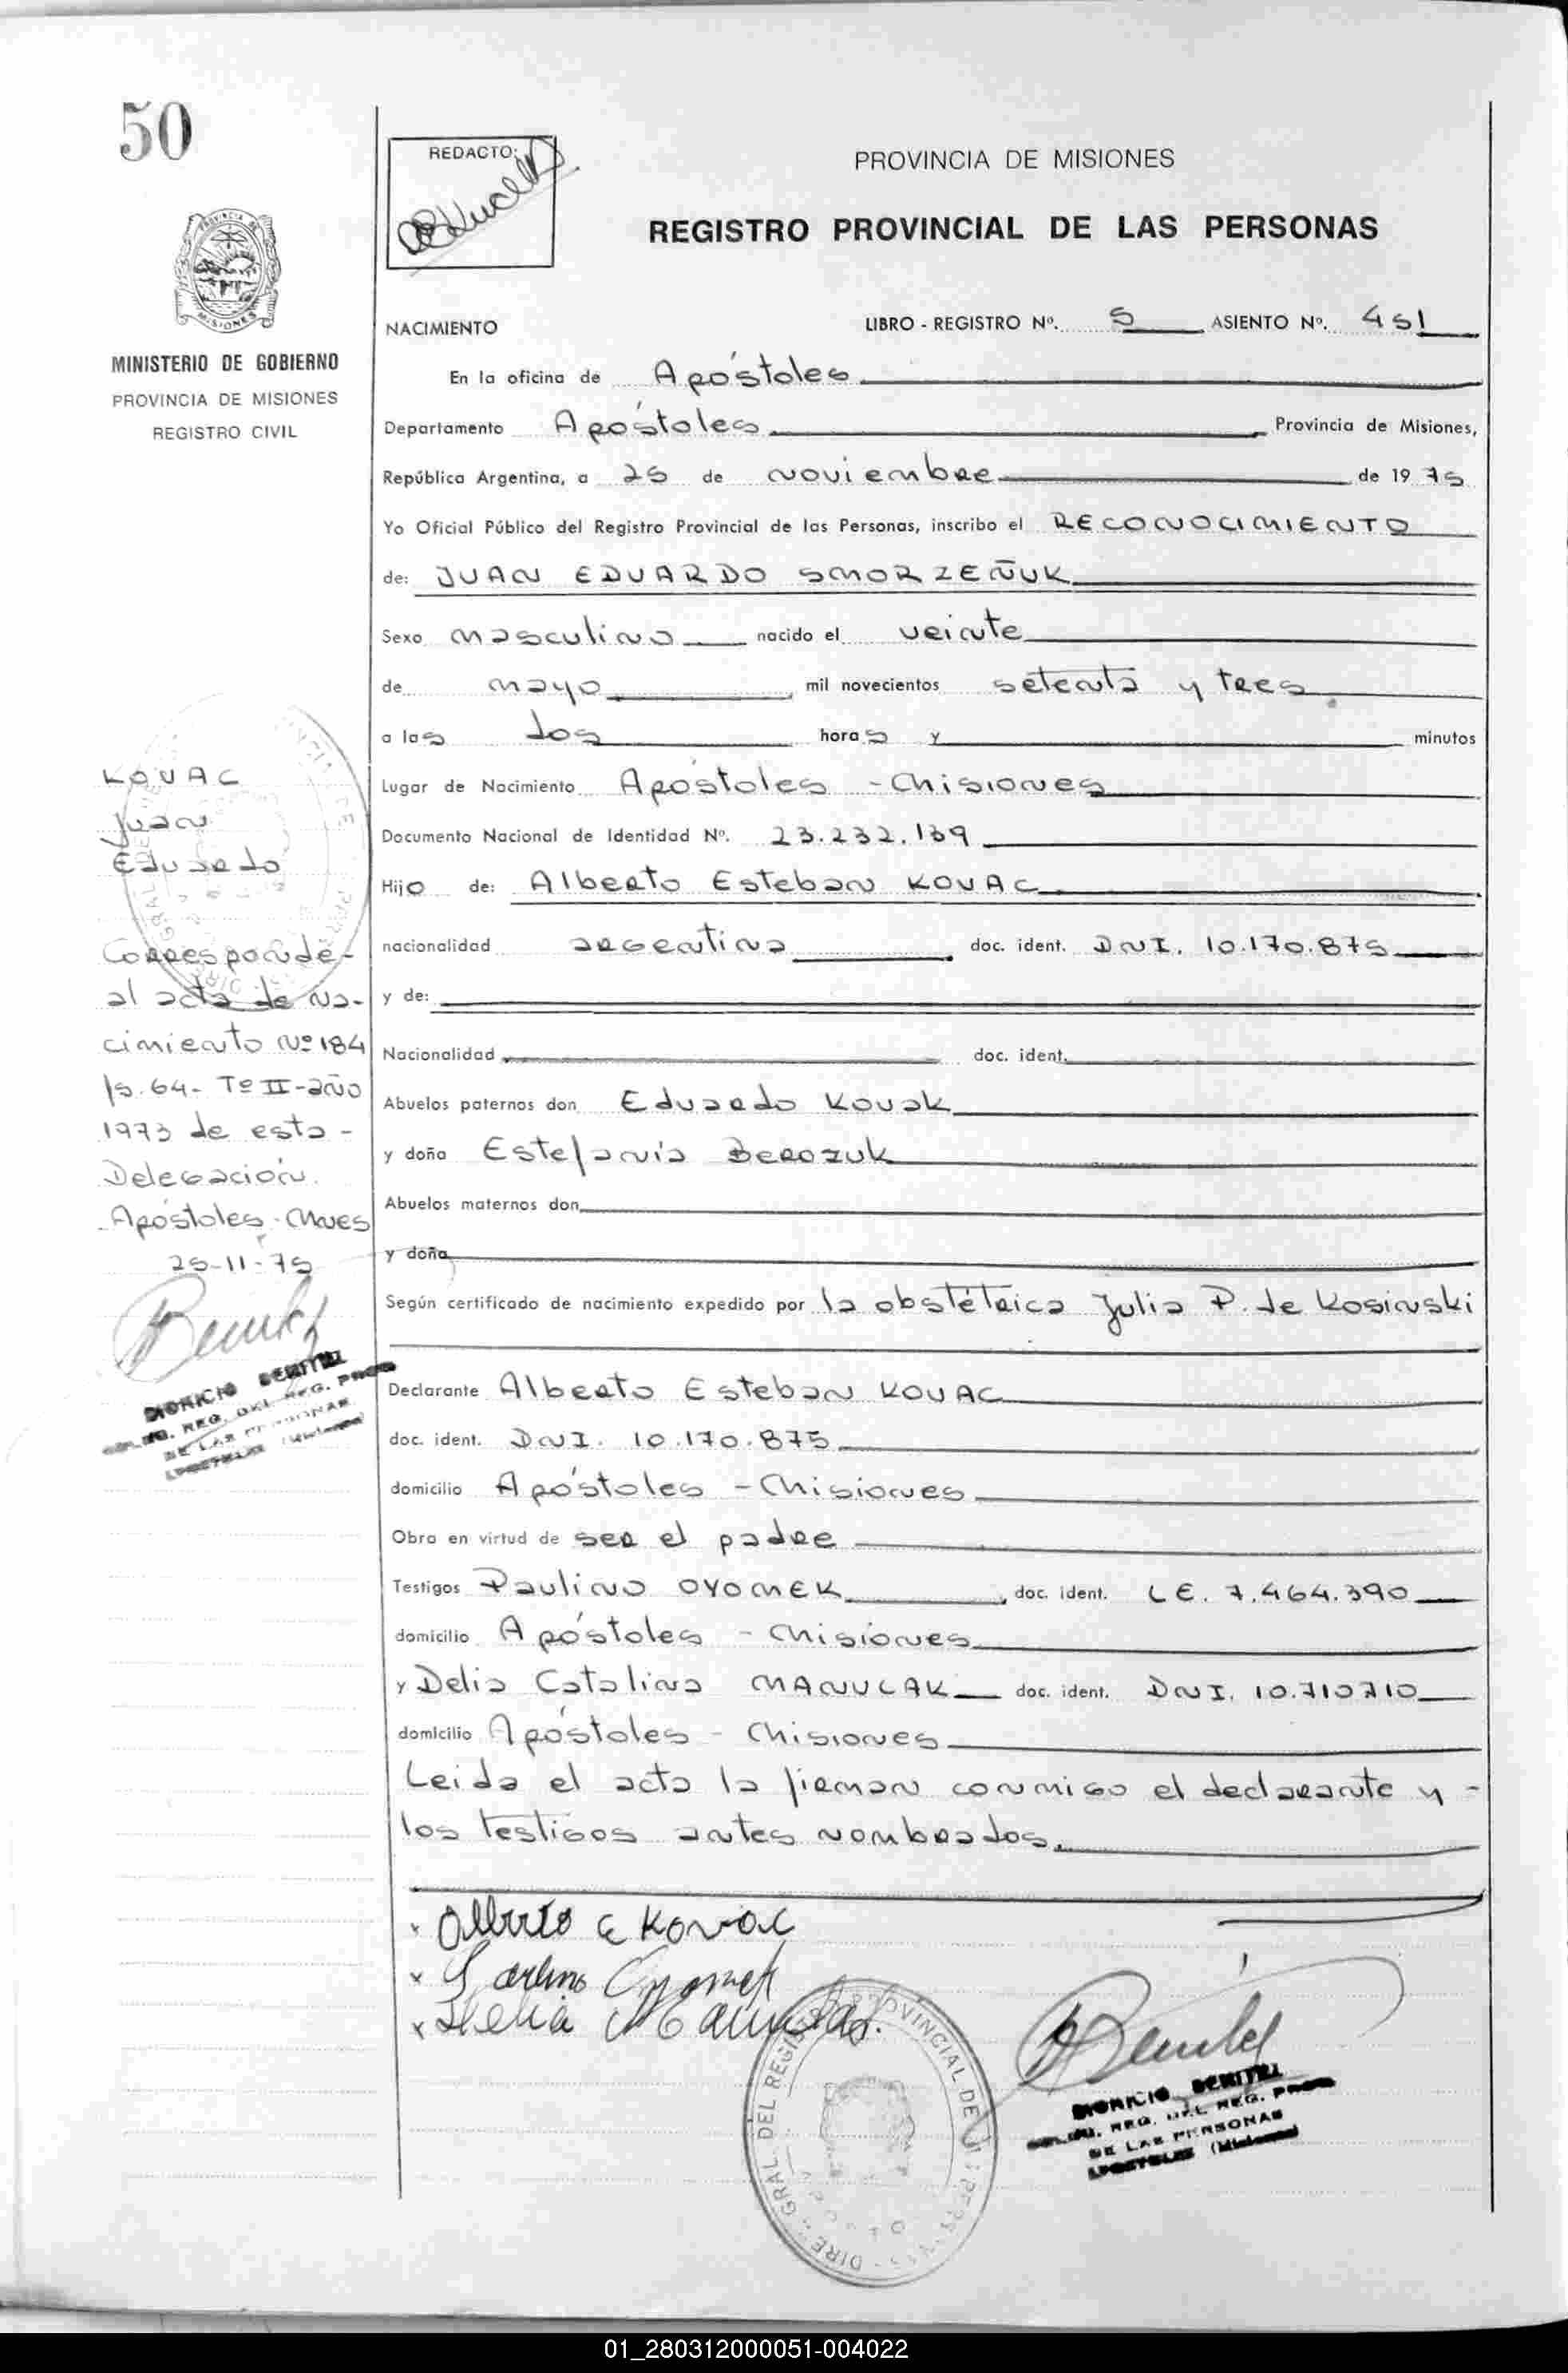 50
REDACTO:
PROVINCIA DE MISIONES
REGISTRO PROVINCIAL DE LAS PERSONAS
MISIONES
MINISTERIO DE GOBIERNO
PROVINCIA DE MISIONES
REGISTRO CIVIL
NACIMIENTO LIBRO - REGISTRO Nº. 5 ASIENTO Nº. 451
En la oficina de Apóstoles
Departamento Apóstoles Provincia de Misiones,
República Argentina, a 25 de noviembre de 1975
Yo Oficial Público del Registro Provincial de las Personas, inscribo el RECONOCIMIENTO
de: JUAN EDUARDO SMORZEÑUK
Sexo masculino nacido el veinte
de mayo mil novecientos setenta y tres
a las dos horas y minutos
Lugar de Nacimiento Apóstoles - Misiones
Documento Nacional de Identidad Nº. 23.232.139
Hijo de: Alberto Esteban KOVAC
nacionalidad argentina doc. ident. DNI. 10.170.875
y de:
Nacionalidad doc. ident.
Abuelos paternos don Eduardo Kovak
y doña Estefanía Berozuk
Abuelos maternos don
y doña
Según certificado de nacimiento expedido por la obstétrica Julia P. de Kosinski
Declarante Alberto Esteban KOVAC
doc. ident. DNI. 10.170.875
domicilio Apóstoles - Misiones
Obra en virtud de ser el padre
Testigos Paulino OYOMEK, doc. ident. LE. 7.464.390
domicilio Apóstoles - Misiones
y Delia Catalina MANULAK doc. ident. DNI. 10.710710
domicilio Apóstoles - Misiones
Leida el acta la firman conmigo el declarante y -
los testigos antes nombrados.
KOVAC
Juan
Eduardo
Corresponde -
al acta de na-
cimiento Nº 184
fs. 64 - Tº II - año
1973 de esta -
Delegación.
Apóstoles - Mnes
25-11-75
DIONICIO BENITEZ
REG. DEL REG. PROV.
DE LAS PERSONAS
APOSTOLES (Misiones)
x Alberto E Kovac
x
x Delia Manulak
DIONICIO BENITEZ
REG. DEL REG. PROV.
DE LAS PERSONAS
APOSTOLES (Misiones)
01_280312000051-004022